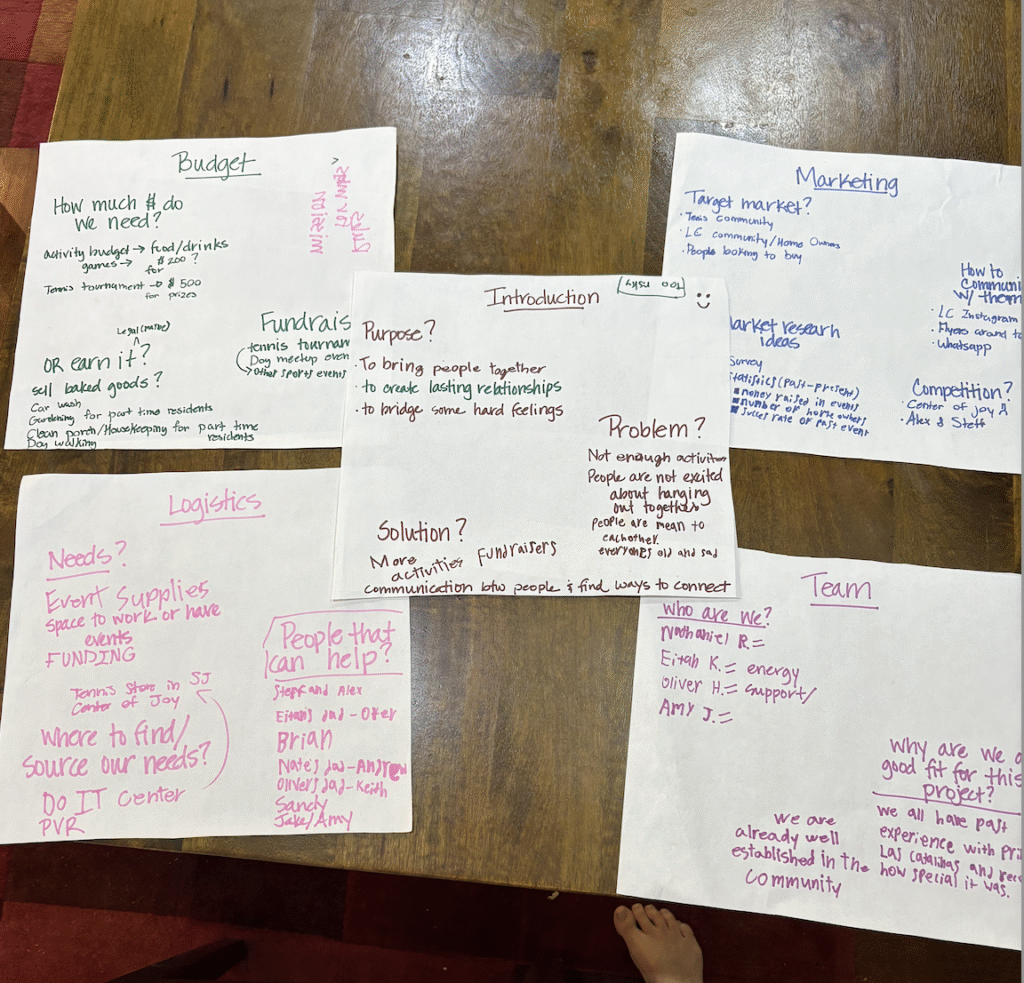 Budget
How much $ do
we need?
activity budget → food/drinks
games → $200?
for
Tennis tournament → $500
for prizes
Legal (native)
OR earn it?
sell baked goods?
Car wash
Gardening for part time residents
Clean porch/Housekeeping for part time
residents
Dog walking
Fundrais
tennis tournam
Dog meetup even
Other sports events
Introduction
Too risky
Purpose?
· To bring people together
· to create lasting relationships
· to bridge some hard feelings
Problem?
Not enough activities
People are not excited
about hanging
out together
People are mean to
eachother.
everyones old and sad
Solution?
More
activities
Fundraisers
communication btw people & find ways to connect
Marketing
Target market?
· Tenis community
· LC community/Home Owners
· People looking to buy
How to
Communi
w/ them
· LC Instagram
· Flyers around to
· Whatsapp
arket research
ideas
survey
statistics (past-present)
money raised in events
number of home owners
succes rate of past event
Competition?
· Center of joy
· Alex & Steff
Logistics
Needs?
Event Supplies
space to work or have
events
FUNDING
Tennis Store in SJ
Center of Joy
where to find/
source our needs?
Do IT Center
PVR
People that
can help?
Steff and Alex
Eitan's dad - Ofer
Brian
Nate's dad - Andrew
Oliver's dad - Keith
Sandy
Jake/Amy
Team
who are we?
Nathaniel R. =
Eitan K. = energy
Oliver H. = support/
Amy J. =
why are we a
good fit for this
project?
we all have past
experience with pri
Las catalinas and rec
how special it was.
we are
already well
established in the
community